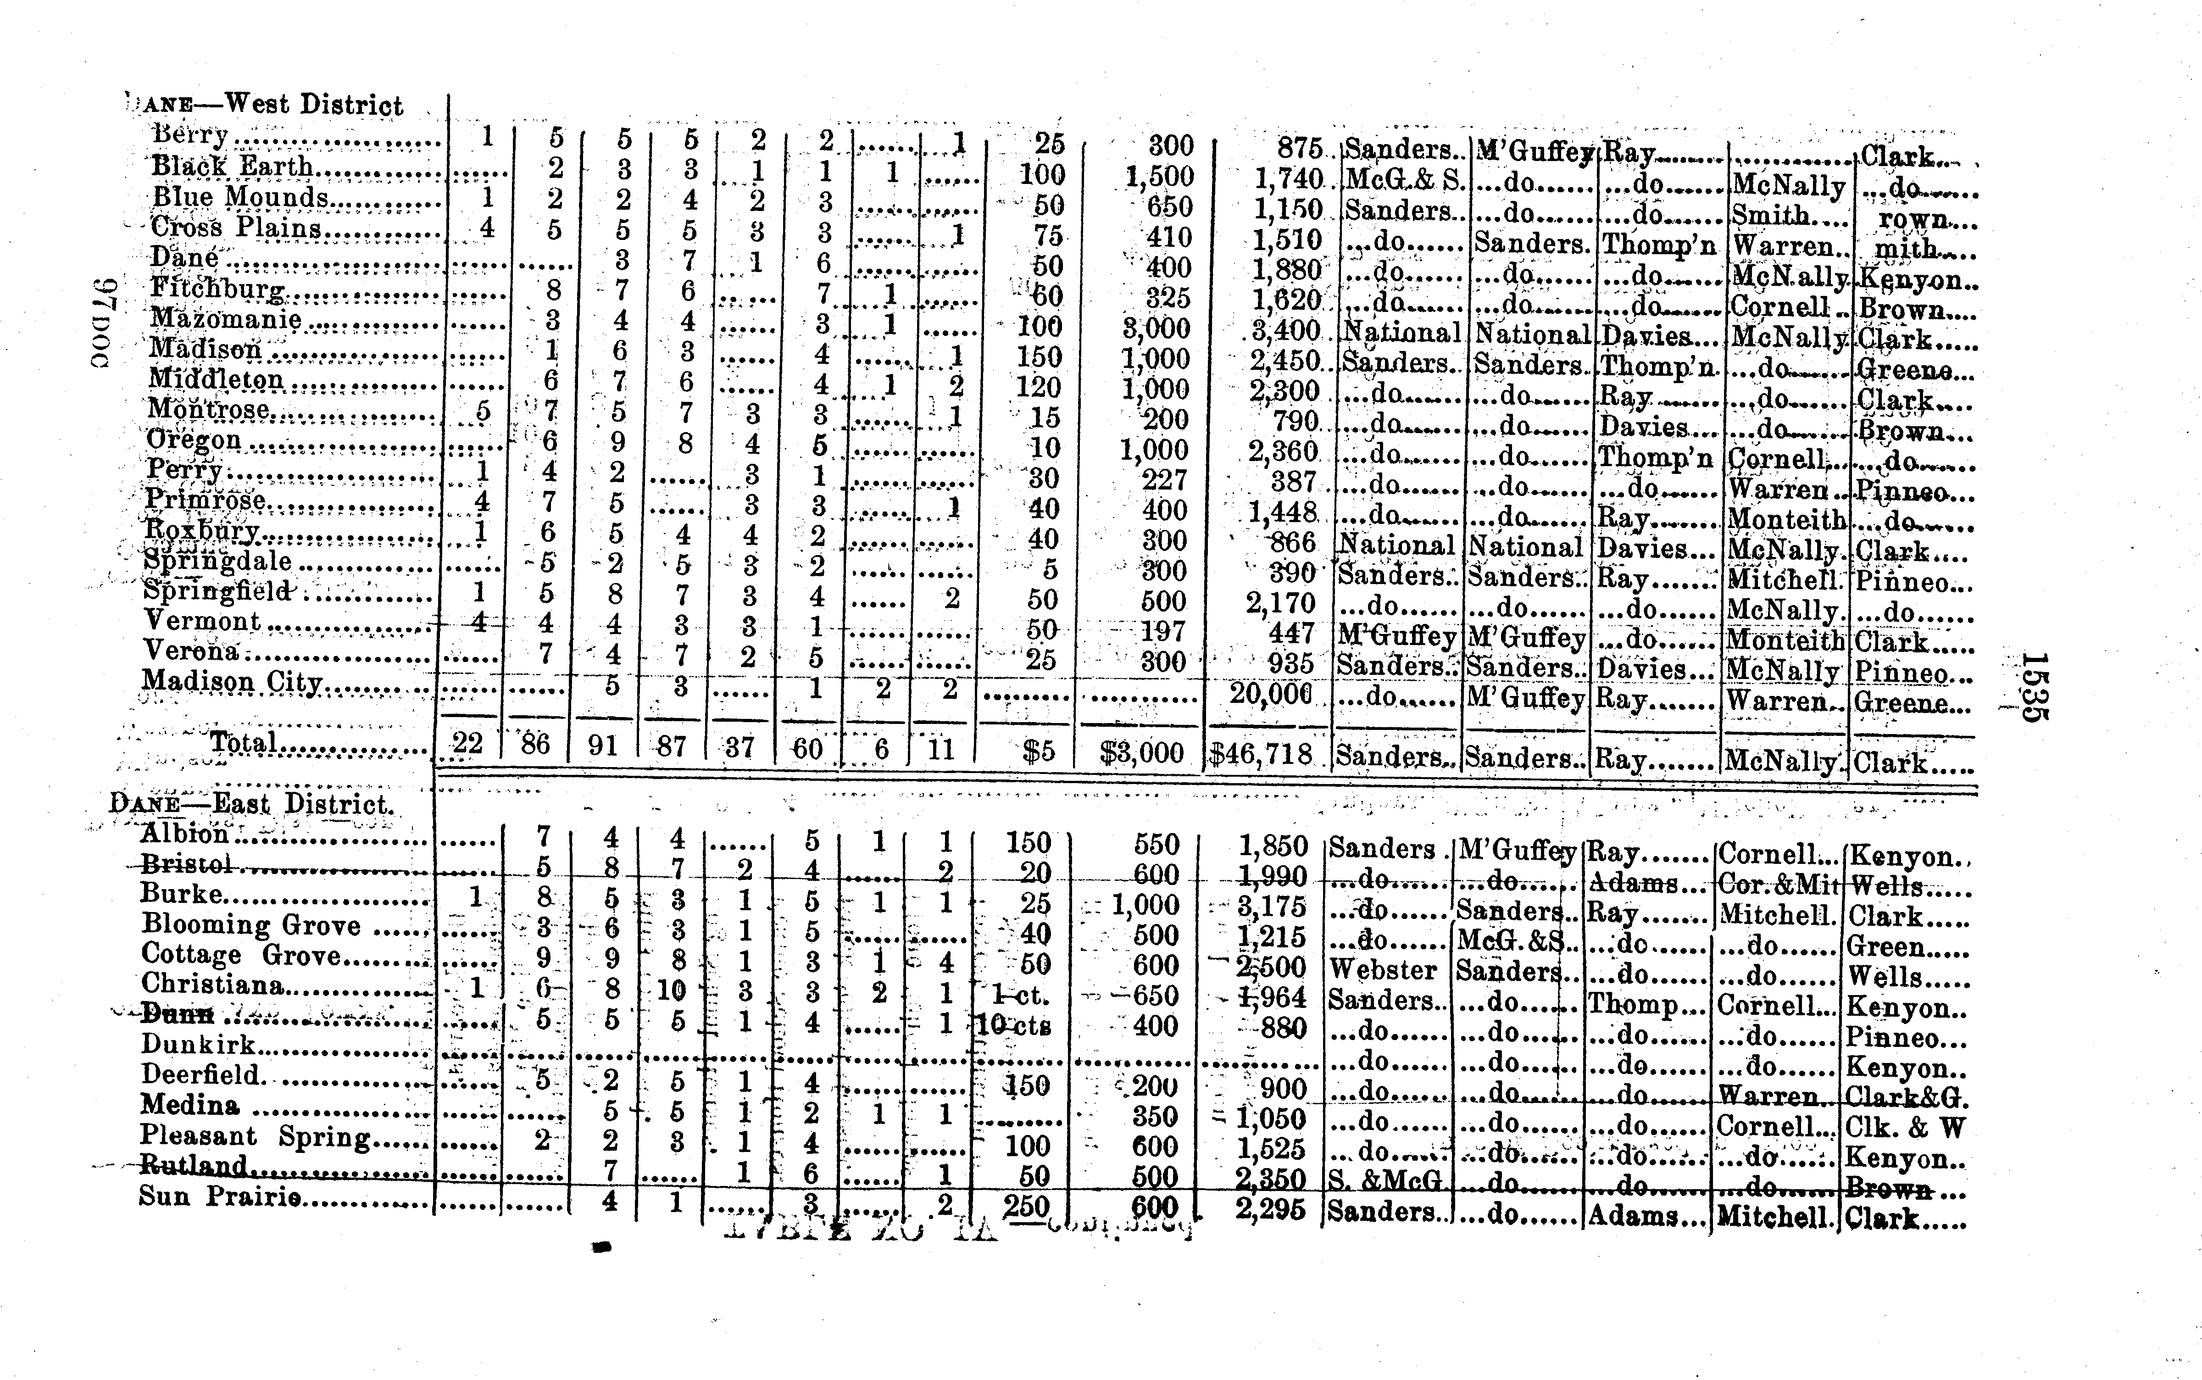 DANE—West District
Berry..................... 1 5 5 5 2 2 ...... 1 25 300 875 Sanders.. M'Guffey Ray....... ............ Clark....
Black Earth............. ...... 2 3 3 1 1 1 ...... 100 1,500 1,740 McG.& S. ...do...... ...do...... McNally ...do......
Blue Mounds........... 1 2 2 4 2 3 ...... ...... 50 650 1,150 Sanders.. ...do...... ...do...... Smith.... rown...
Cross Plains............ 4 5 5 5 3 3 ...... 1 75 410 1,510 ...do...... Sanders. Thomp'n Warren.. mith....
Dane ..................... ...... ...... 3 7 1 6 ...... ...... 50 400 1,880 ...do...... ...do...... ...do...... McNally. Kenyon..
Fitchburg................ ...... 8 7 6 ...... 7 1 ...... 60 325 1,620 ...do...... ...do...... ...do...... Cornell .. Brown....
Mazomanie .............. ...... 3 4 4 ...... 3 1 ...... 100 3,000 3,400 National National Davies... McNally Clark.....
Madison .................. ...... 1 6 3 ...... 4 ...... 1 150 1,000 2,450 Sanders.. Sanders. Thomp'n. ...do...... Greene...
Middleton ................ ...... 6 7 6 ...... 4 1 2 120 1,000 2,300 ...do...... ...do...... Ray ....... ...do...... Clark....
Montrose.................. 5 7 5 7 3 3 ...... 1 15 200 790 ...do...... ...do...... Davies... ...do...... Brown...
Oregon .................... ...... 6 9 8 4 5 ...... ...... 10 1,000 2,360 ...do...... ...do...... Thomp'n Cornell... ...do......
Perry...................... 1 4 2 ...... 3 1 ...... ...... 30 227 387 ...do...... ...do...... ...do...... Warren .. Pinneo...
Primrose.................. 4 7 5 ...... 3 3 ...... 1 40 400 1,448 ...do...... ...do...... Ray....... Monteith ...do......
Roxbury................... 1 6 5 4 4 2 ...... ...... 40 300 866 National National Davies... McNally. Clark....
Springdale ............... ...... 5 2 5 3 2 ...... ...... 5 300 390 Sanders.. Sanders.. Ray....... Mitchell. Pinneo...
Springfield .............. 1 5 8 7 3 4 ...... 2 50 500 2,170 ...do...... ...do...... ...do...... McNally. ...do......
Vermont .................. 4 4 4 3 3 1 ...... ...... 50 197 447 M'Guffey M'Guffey ...do...... Monteith Clark.....
Verona.................... ...... 7 4 7 2 5 ...... ...... 25 300 935 Sanders.. Sanders.. Davies... McNally Pinneo...
Madison City............ ...... ...... 5 3 ...... 1 2 2 ......... ............ 20,000 ...do...... M'Guffey Ray....... Warren.. Greene...
Total............... 22 86 91 87 37 60 6 11 $5 $3,000 $46,718 Sanders.. Sanders.. Ray....... McNally. Clark.....
DANE—East District.
Albion..................... ...... 7 4 4 ...... 5 1 1 150 550 1,850 Sanders . M'Guffey Ray....... Cornell... Kenyon..
Bristol..................... ...... 5 8 7 2 4 ...... 2 20 600 1,990 ...do...... ...do...... Adams... Cor.&Mit Wells.....
Burke...................... 1 8 5 3 1 5 1 1 25 1,000 3,175 ...do...... Sanders.. Ray....... Mitchell. Clark.....
Blooming Grove ...... ...... 3 6 3 1 5 ...... ...... 40 500 1,215 ...do...... McG.&S.. ...do...... ...do...... Green....
Cottage Grove......... ...... 9 9 8 1 3 1 4 50 600 2,500 Webster Sanders.. ...do...... ...do...... Wells.....
Christiana................ 1 6 8 10 3 3 2 1 1 ct. 650 1,964 Sanders.. ...do...... Thomp... Cornell... Kenyon..
Dunn ...................... ...... 5 5 5 1 4 ...... 1 10 cts 400 880 ...do...... ...do...... ...do...... ...do...... Pinneo...
Dunkirk................... ...... ...... ...... ...... ...... ...... ...... ...... ......... ............ ............ ...do...... ...do...... ...do...... ...do...... Kenyon..
Deerfield. ............... ...... 5 2 5 1 4 ...... ...... 150 200 900 ...do...... ...do...... ...do...... Warren.. Clark&G.
Medina ................... ...... ...... 5 5 1 2 1 1 ......... 350 1,050 ...do...... ...do...... ...do...... Cornell... Clk. & W
Pleasant Spring...... ...... 2 2 3 1 4 ...... ...... 100 600 1,525 ...do...... ...do...... ...do...... ...do...... Kenyon..
Rutland................... ...... ...... 7 ...... 1 6 ...... 1 50 500 2,350 S. &McG. ...do...... ...do...... ...do...... Brown ...
Sun Prairie............... ...... ...... 4 1 ...... 3 ...... 2 250 600 2,295 Sanders.. ...do...... Adams... Mitchell. Clark.....
97DOC
1535